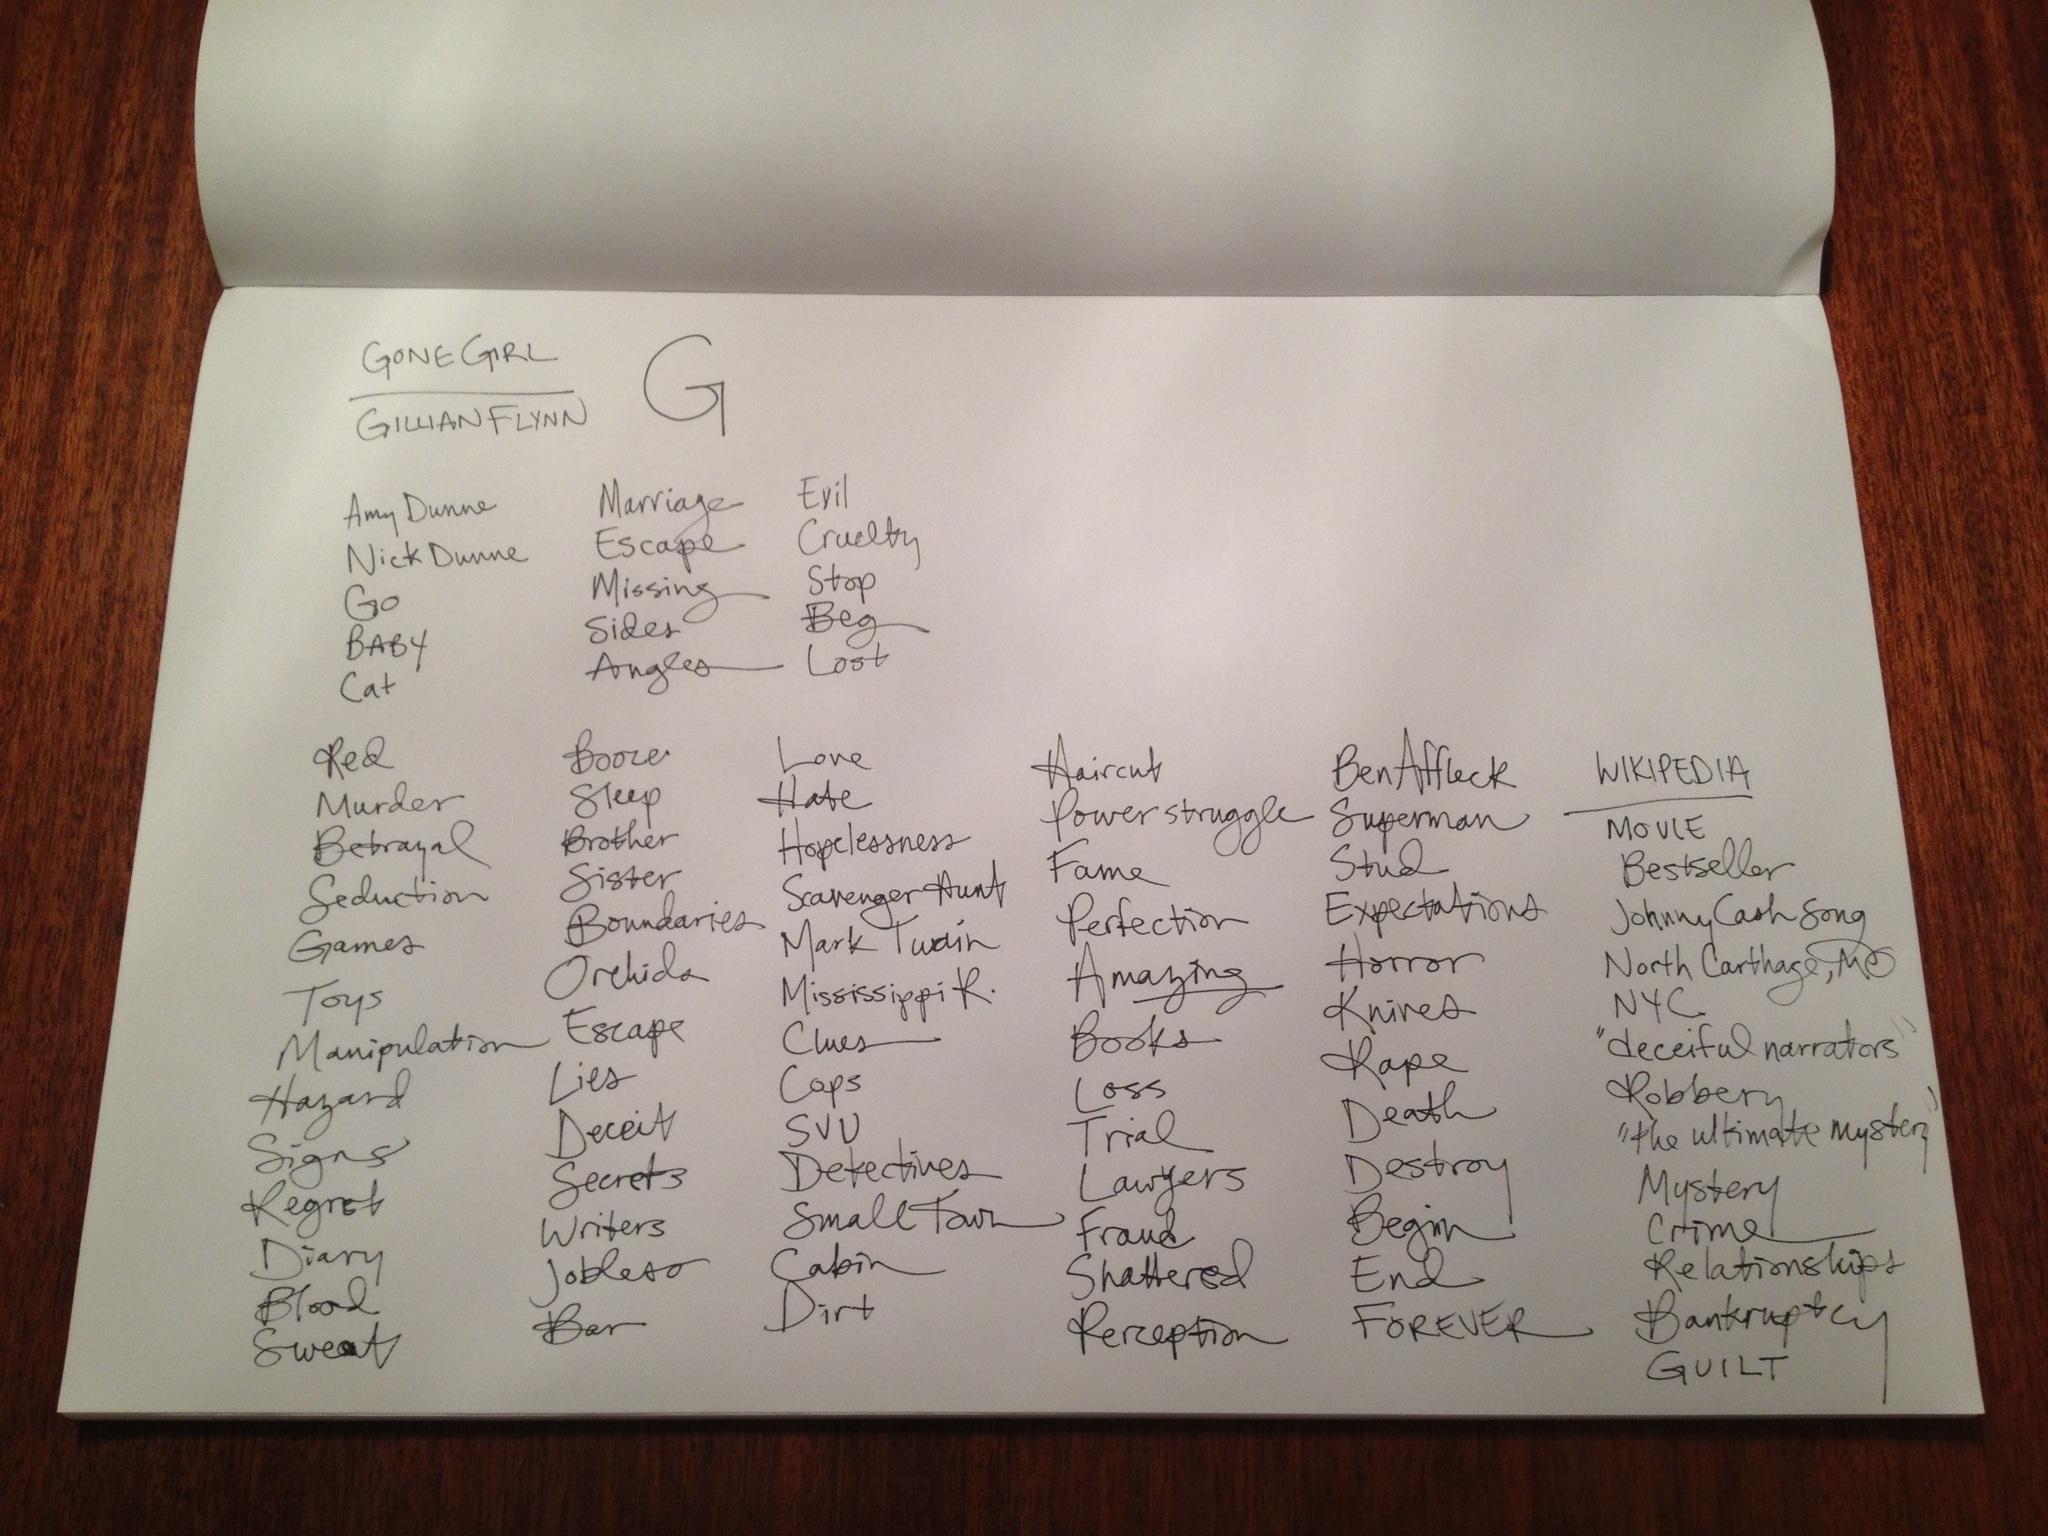 GONE GIRL
GILLIAN FLYNN
G
Amy Dunne
Nick Dunne
Go
BABY
Cat
Marriage
Escape
Missing
Sides
Angles
Evil
Cruelty
Stop
Beg
Lost
Red
Murder
Betrayal
Seduction
Games
Toys
Manipulation
Hazard
Signs
Regret
Diary
Blood
Sweat
Booze
Sleep
Brother
Sister
Boundaries
Orchids
Escape
Lies
Deceit
Secrets
Writers
Jobless
Bar
Love
Hate
Hopelessness
Scavenger Hunt
Mark Twain
Mississippi R.
Clues
Cops
SVU
Detectives
Small Town
Cabin
Dirt
Haircut
Power struggle
Fame
Perfection
Amazing
Books
Loss
Trial
Lawyers
Fraud
Shattered
Perception
Ben Affleck
Superman
Stud
Expectations
Horror
Knives
Rape
Death
Destroy
Begin
End
FOREVER
WIKIPEDIA
MOVIE
Bestseller
Johnny Cash Song
North Carthage, MO
NYC
"deceiful narrators"
Robbery
"the ultimate mystery"
Mystery
Crime
Relationships
Bankruptcy
GUILT